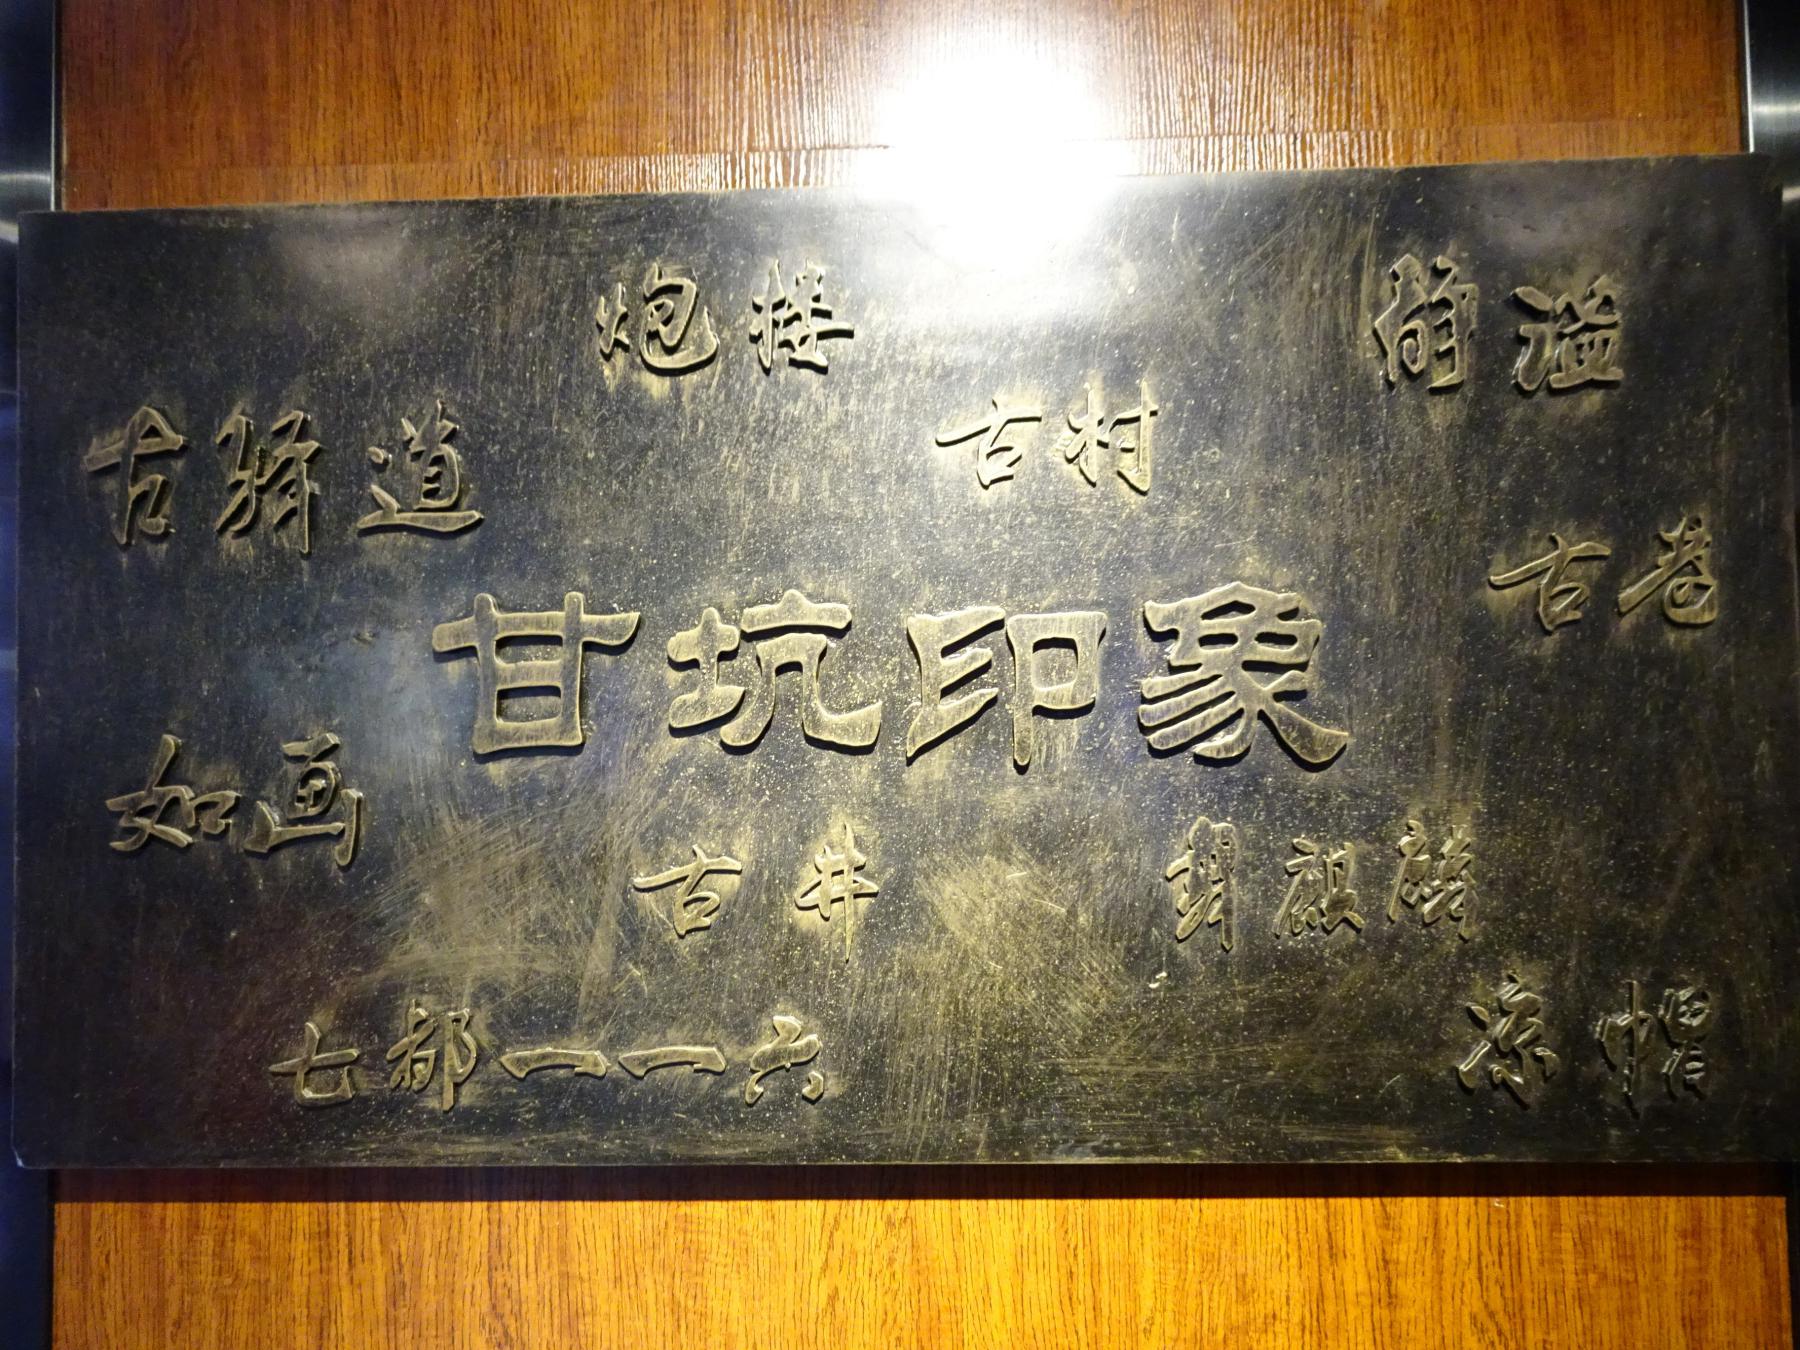 炮楼
古驿道
古村
古巷
甘坑印象
如画
古井
舞麒麟
七都一一六
凉帽